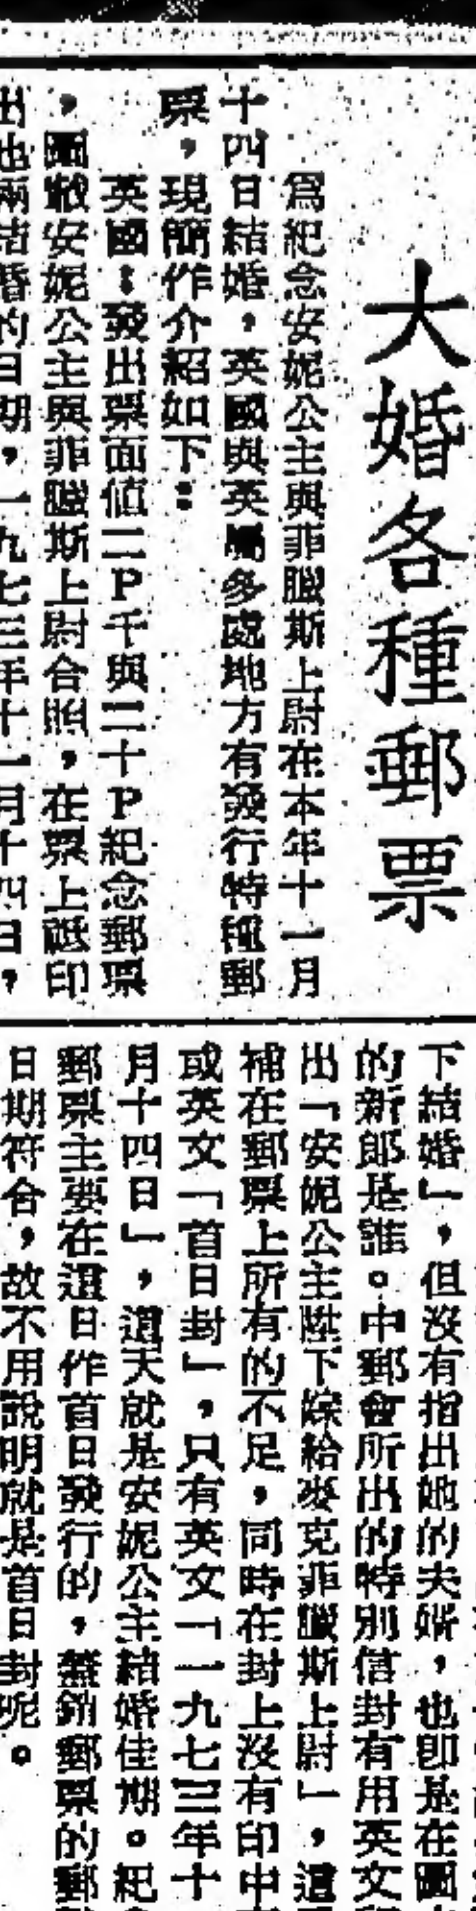 大婚各種郵票
爲紀念安妮公主與菲臘斯上尉在本年十一月
十四日結婚，英國與英屬多處地方有發行特種郵
票，現簡作介紹如下：
英國：發出票面值二P千與二十P紀念郵票
，圖徽安妮公主與菲臘斯上尉合照，在票上祗印
出也兩結婚的日期，一九七三年十一月十四日，
下結婚」，但沒有指出她的夫婿，也卽是在圖
的新郎是誰。中郵會所出的特別信封有用英文
出「安妮公主陛下嫁給麥克菲臘斯上尉」，這
補在郵票上所有的不足，同時在封上沒有印中
或英文「首日封」，只有英文「一九七三年十
月十四日」，這天就是安妮公主結婚佳期。紀
郵票主要在這日作首日發行的，蓋銷郵票的郵
日期符合，故不用說明就是首日封呢。